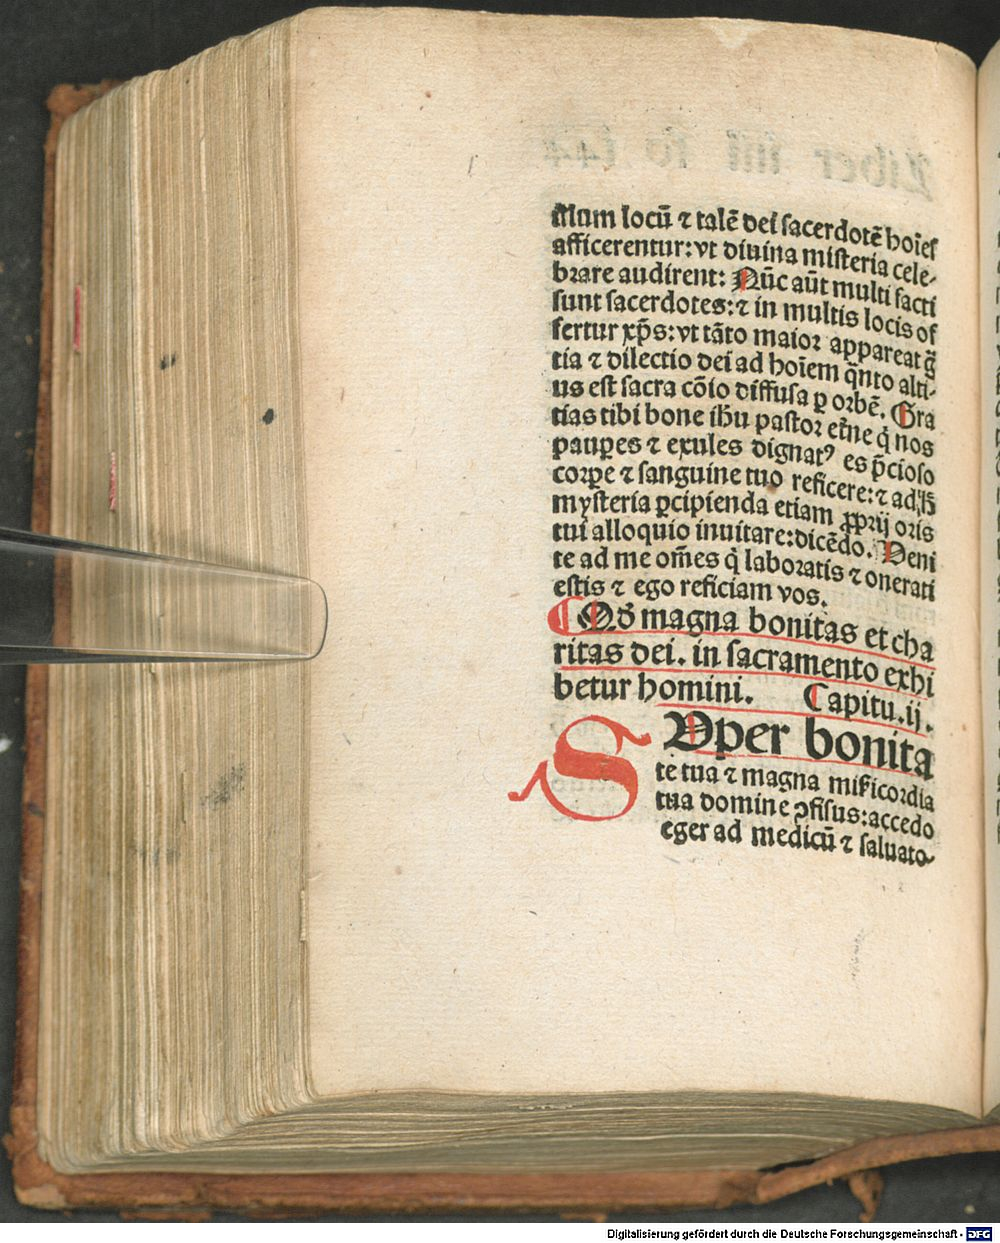 illum locū ⁊ talē dei ſacerdotē hoīeſ
afficerentur: vt diuina miſteria cele⸗
brare audirent: Nūc aūt multi facti
ſunt ſacerdotes: ⁊ in multis locis of
fertur xp̄s: vt tāto maioꝛ appareat ḡ
tia ⁊ dilectio dei ad hoīem q̄nto alti⸗
us eſt ſacra cōio diffuſa ꝑ oꝛbē. Gra
tias tibi bone ihū paſtoꝛ et̄ne q̇ nos
pauꝑes ⁊ exules dignatꝰ es p̄cioſo
coꝛꝑe ⁊ ſanguine tuo reficere: ⁊ ad h̄
myſteria ꝑcipienda etiam ꝓpꝛij oꝛis
tui alloquio inuitare: dicēdo. Veni
te ad me om̄es q̇ laboꝛatis ⁊ onerati
eſtis ⁊ ego reficiam vos.
¶ Qd̓ magna bonitas et cha
ritas dei. in ſacramento exhi
betur homini. Capitu .ij.
SVper bonita
te tua ⁊ magna miẜicoꝛdia
tua domine ꝯfiſus: accedo
eger ad medicū ⁊ ſaluato⸗
Digitalisierung gefördert durch die Deutsche Forschungsgemeinschaft - DFG